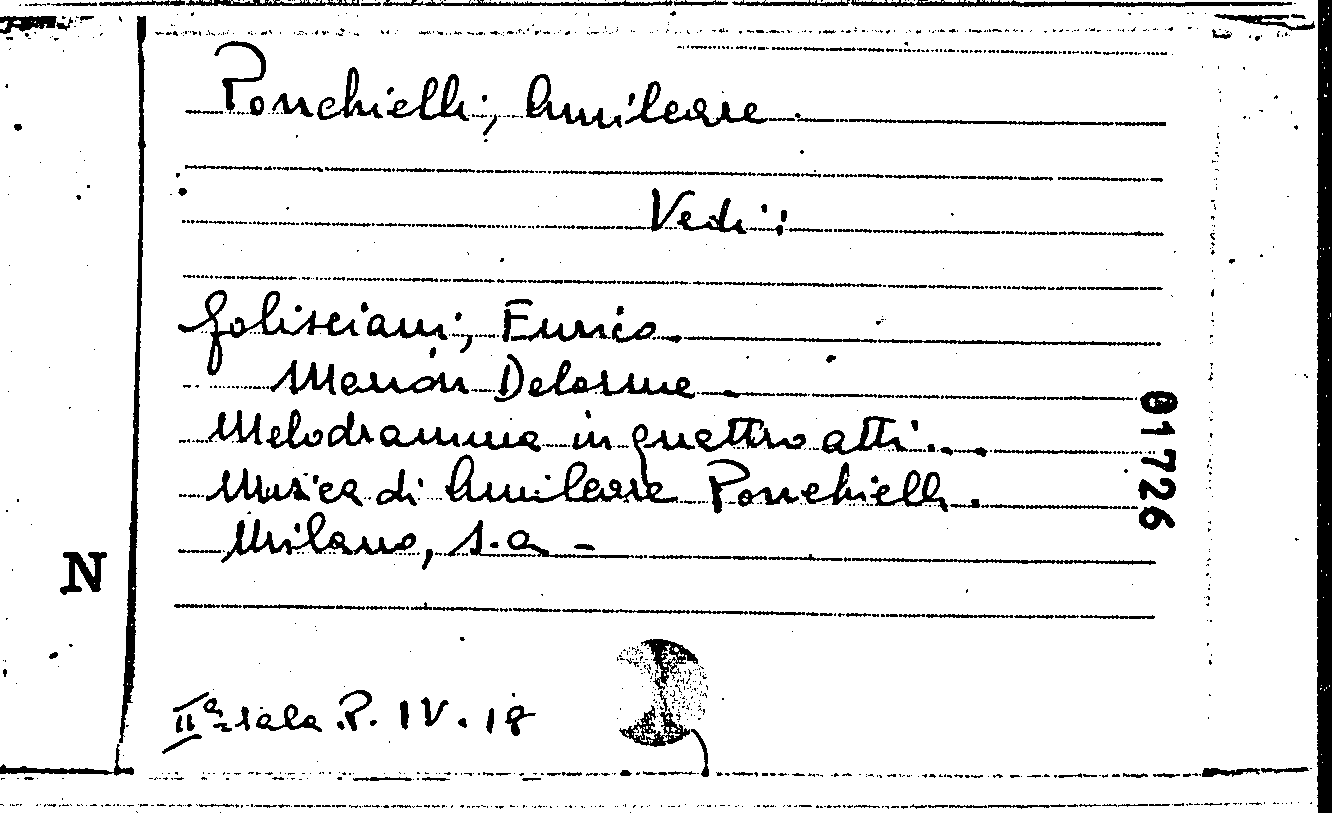 Ponchielli, Amilcare.
Vedi:
Golisciani, Enrico.
Marion Delorme.
Melodramma in quattro atti...
Musica di Amilcare Ponchielli.
Milano, s.a -
01726
N
IIª sala. P. IV. 18